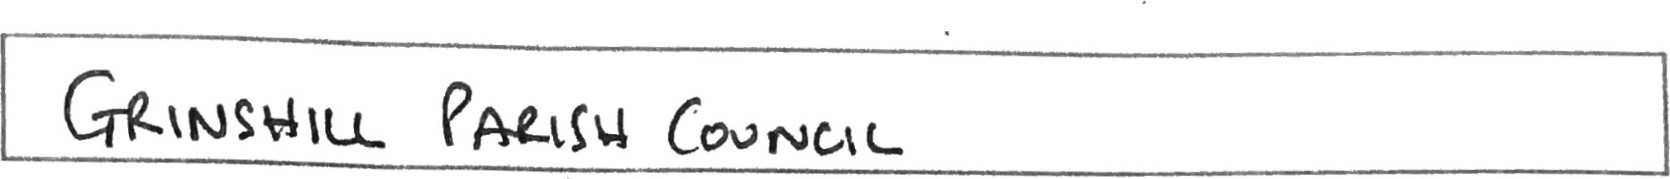 GRINSHILL PARISH COUNCIL